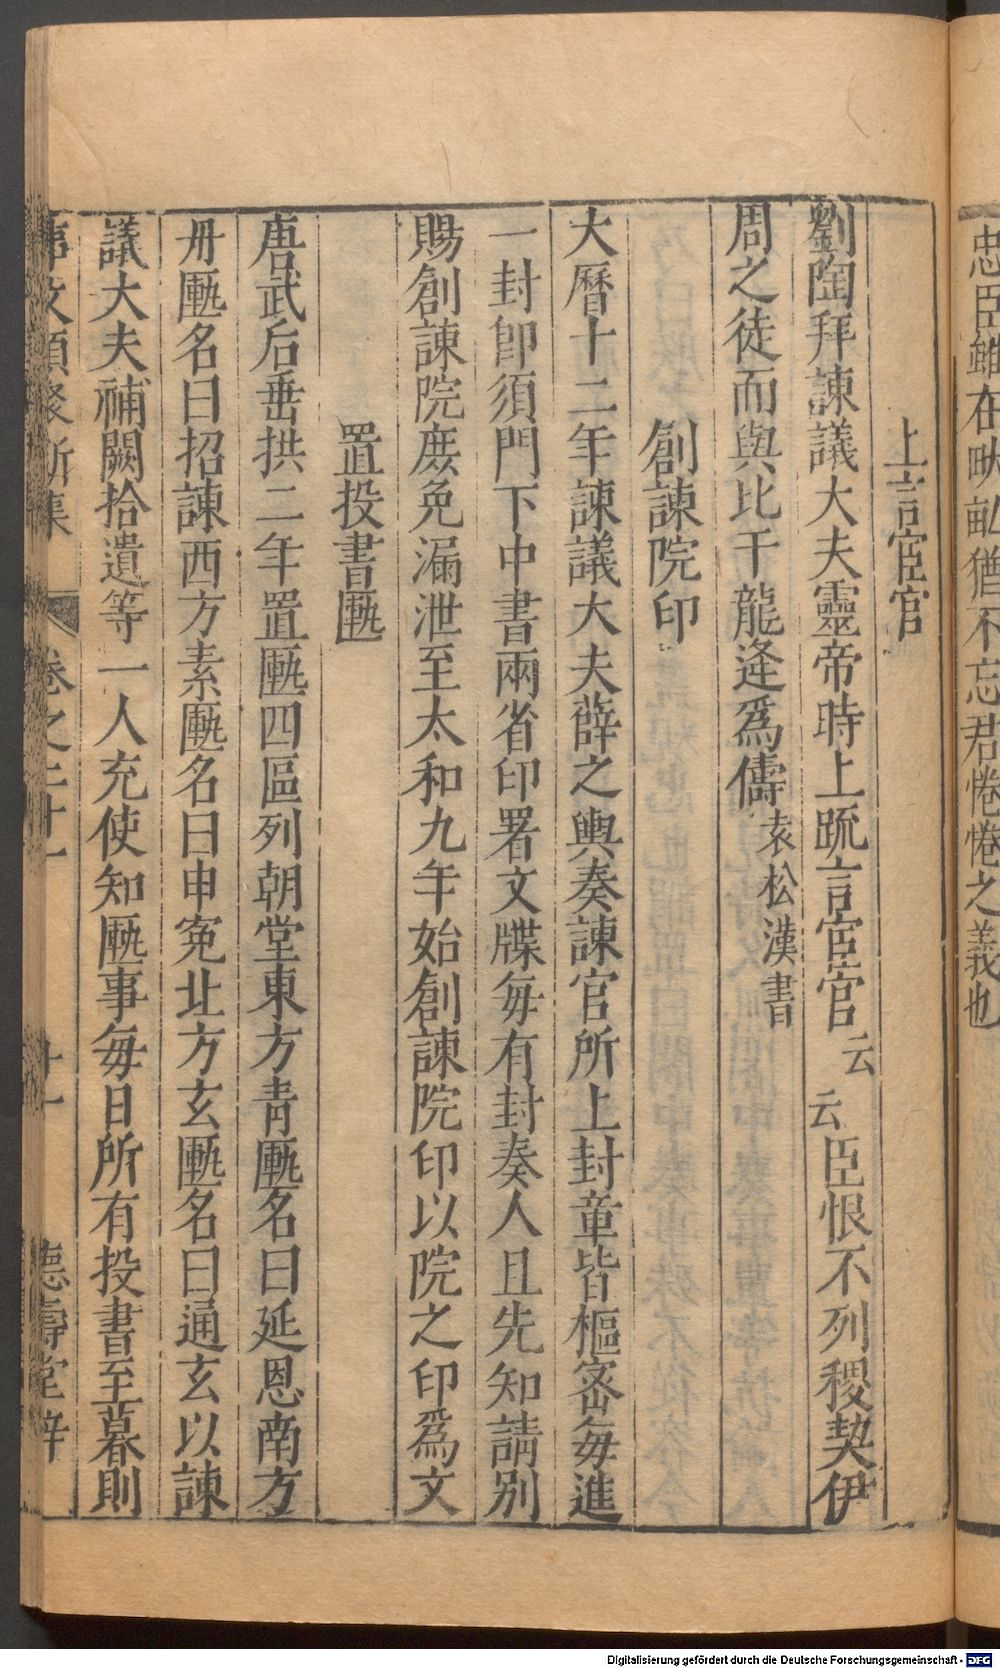 忠臣雖在畎畝猶不忘君惓惓之義也
上言宦官
劉陶拜諫議大夫靈帝時上疏言宦官云云臣恨不列稷契伊
周之徒而與比干龍逄爲儔袁松漢書
創諫院印
大曆十二年諫議大夫薛之輿奏諫官所上封章皆樞宻每進
一封卽須門下中書兩省印署文牒每有封奏人且先知請別
賜創諫院庻免漏泄至太和九年始創諫院印以院之印爲文
置投書匭
唐武后垂拱二年置匭四區列朝堂東方青匭名曰延恩南方
丹匭名曰招諫西方素匭名曰申寃北方玄匭名曰通玄以諫
議大夫補闕拾遺等一人充使知匭事每日所有投書至暮則
事文類聚新集 卷之二十一 十一 德壽堂梓
Digitalisierung gefördert durch die Deutsche Forschungsgemeinschaft - DFG